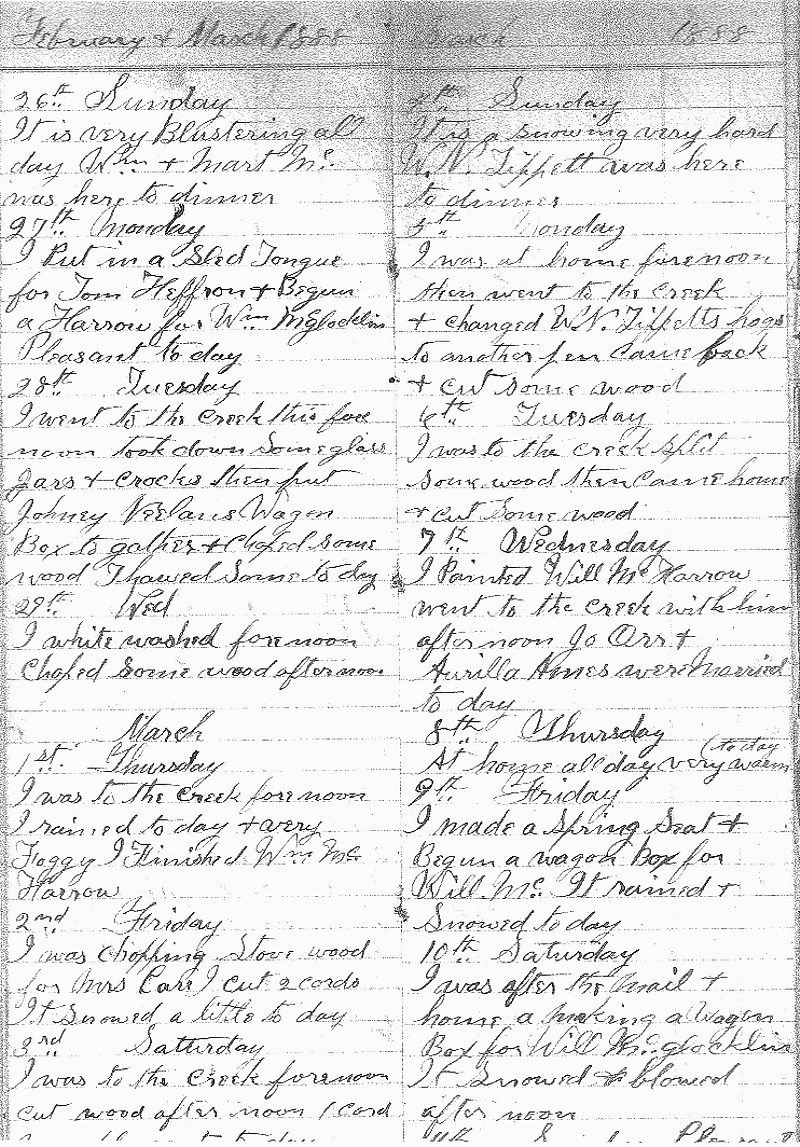 February + March 1888
26th Sunday
It is very Blustering all
day Wm + Mart Mc
was here to dinner
27th Monday
I Put in a Sled Tongue
for Tom Heffron + Begun
a Harrow for Wm McGlocklin
Pleasant to day
28th Tuesday
I went to the creek this fore
noon took down some glass
Jars + crocks then put
Johney Wagon
Box to gather + Choped some
wood Thawed Some to day
29th Wed
I white washed forenoon
Choped some wood afternoon
March
1st Thursday
I was to the creek forenoon
I rained to day + very
Foggy I Finished Wm Mc
Harrow
2nd Friday
I was chopping Stove wood
for Mrs Carr I cut 2 cords
It Snowed a little to day
3rd Saturday
I was to the Creek forenoon
cut wood after noon 1 cord
to day
March 1888
4th Sunday
It is a snowing very hard
W.N. Tippett was here
to dinner
5th Monday
I was at home forenoon
then went to the creek
+ changed W.N. Tippetts hogs
to another pen Came back
+ cut some wood
6th Tuesday
I was to the creek split
some wood then came home
+ cut some wood
7th Wednesday
I Painted Will Mc Harrow
went to the creek with him
after noon Jo Orr +
Aurilla Ames were Married
to day
8th Thursday
At home all day very warm
(to day
9th Friday
I made a Spring Seat +
Begun a wagon Box for
Will. Mc. It rained +
Snowed to day
10th Saturday
I was after the mail +
home a making a Wagon
Box for Will Mc.glocklin
It Snowed + blowed
after noon
11th Pleasant